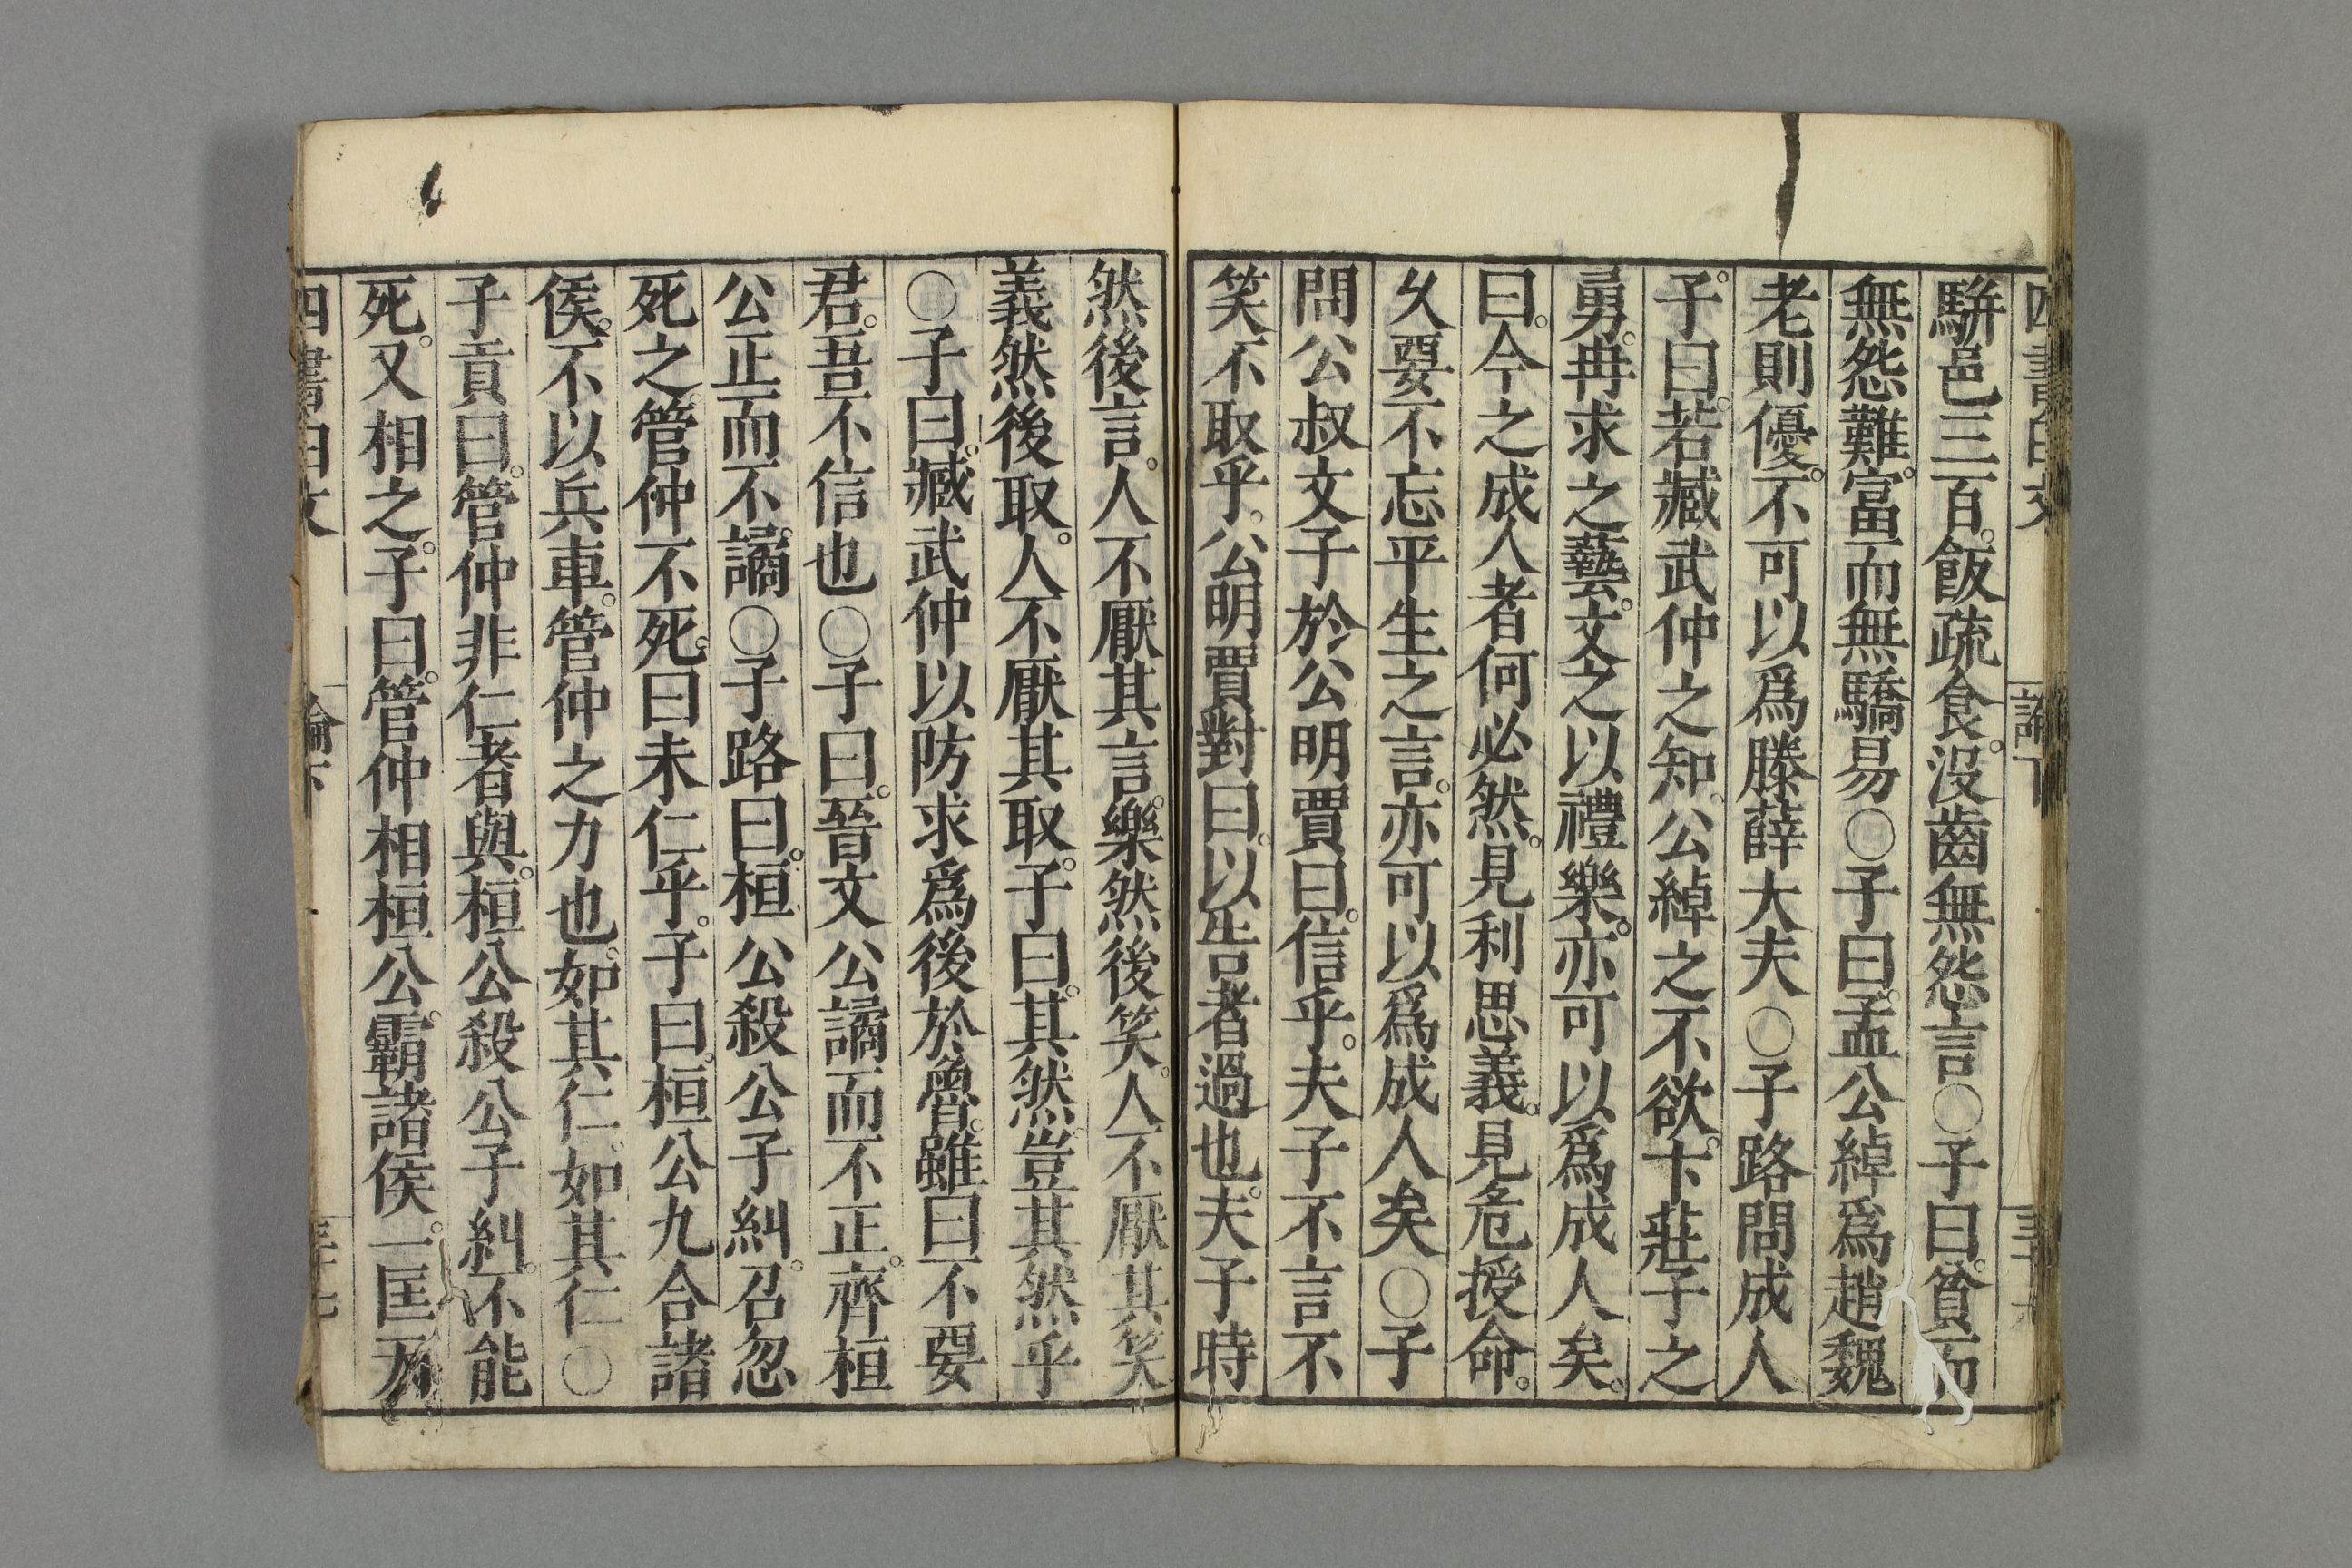 四書白文 論下
騈邑三百。飯疏食。沒齒無怨言○子曰。貧而
無怨難。富而無驕易○子曰。孟公綽爲趙魏
老則優。不可以爲滕薛大夫○子路問成人
子。曰。若臧武仲之知。公綽之不欲。卞莊子之
勇。冉求之藝。文之以禮樂。亦可以爲成人矣。
曰。今之成人者何必然。見利思義。見危授命。
久要不忘平生之言。亦可以爲成人矣○子
問公叔文子於公明賈曰。信乎。夫子不言不
笑不取乎。公明賈對曰。以告者過也。夫子時
然後言。人不厭其言。樂然後笑。人不厭其笑
義然後取。人不厭其取。子曰。其然。豈其然乎
○子曰。臧武仲以防求爲後於魯。雖曰不要
君。吾不信也○子曰。晉文公譎而不正。齊桓
公正而不譎○子路曰。桓公殺公子糾。召忽
死之。管仲不死。曰未仁乎。子曰。桓公九合諸
侯。不以兵車。管仲之力也。如其仁。如其仁○
子貢曰。管仲非仁者與。桓公殺公子糾。不能
死。又相之。子曰。管仲相桓公。霸諸侯。一匡天
四書白文 論下